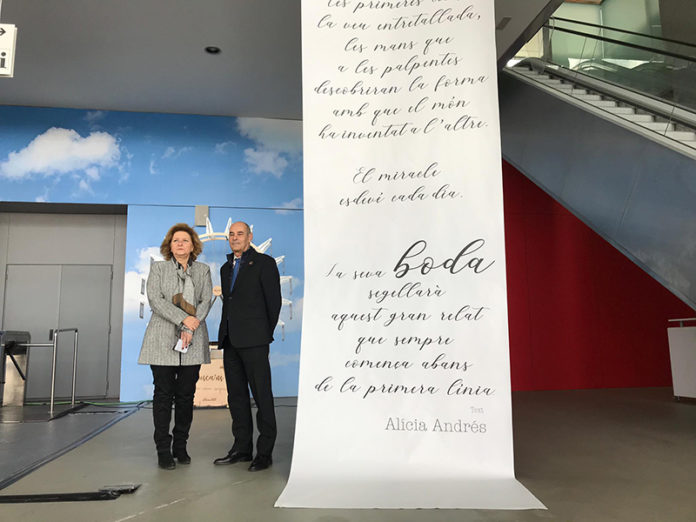 les primeres
la veu entretallada,
les mans que
a les palpentes
descobriran la forma
amb que el món
ha inventat a l'altre.
El miracle
esdevé cada dia.
La seva boda
segellarà
aquest gran relat
que sempre
comença abans
de la primera línia
Text
Alícia Andrés